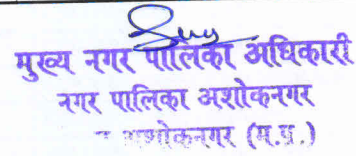 मुख्य नगर पालिका अधिकारी
नगर पालिका अशोकनगर
अशोकनगर (म.प्र.)